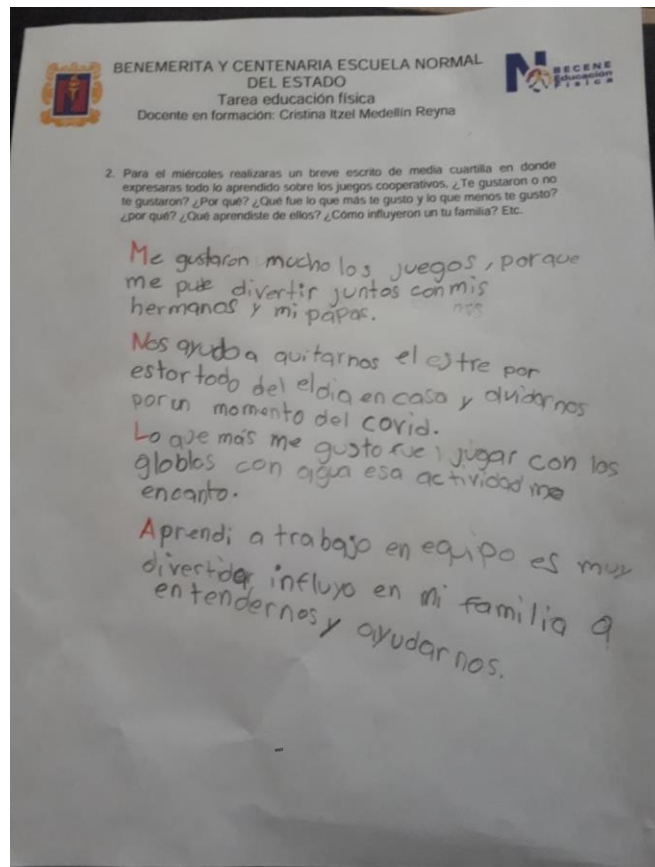 BENEMERITA Y CENTENARIA ESCUELA NORMAL
DEL ESTADO
Tarea educación física
Docente en formación: Cristina Itzel Medellín Reyna
BECENE
Educación
Física
2. Para el miércoles realizaras un breve escrito de media cuartilla en donde
expresaras todo lo aprendido sobre los juegos cooperativos. ¿Te gustaron o no
te gustaron? ¿Por qué? ¿Qué fue lo que más te gusto y lo que menos te gusto?
¿por qué? ¿Qué aprendiste de ellos? ¿Cómo influyeron un tu familia? Etc.
Me gustaron mucho los juegos, porque
me pude divertir juntos con mis
hermanos y mi papas.
Nos ayudo a quitarnos el estre por
estar todo del el dia en casa y olvidarnos
por un momento del covid.
Lo que más me gusto fue: jugar con los
globlos con agua esa actividad me
encanto.
Aprendi a trabajo en equipo es muy
divertido, influyo en mi familia a
entendernos y ayudarnos.